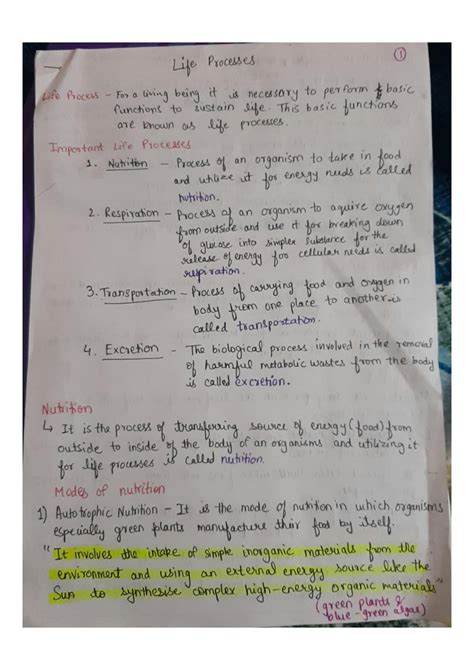 Life Processes
①
Life Process - For a living being it is necessary to perform basic
functions to sustain life. This basic functions
are known as life processes.
Important Life Processes
1. Nutrition - Process of an organism to take in food
and utilize it for energy needs is called
nutrition.
2. Respiration - Process of an organism to aquire oxygen
from outside and use it for breaking down
of glucose into simplex substance for the
release of energy for cellular needs is called
respiration.
3. Transportation - Process of carrying food and oxygen in
body from one place to another is
called transportation.
4. Excretion - The biological process involved in the removal
of harmful metabolic wastes from the body
is called excretion.
Nutrition
↳ It is the process of transferring source of energy (food) from
outside to inside of the body of an organisms and utilizing it
for life processes is called nutrition.
Modes of nutrition
1) Autotrophic Nutrition - It is the mode of nutrition in which organisms
especially green plants manufacture their food by itself.
"It involves the intake of simple inorganic materials from the
environment and using an external energy source like the
Sun to synthesise complex high-energy organic materials"
(green plants &
blue-green algae)